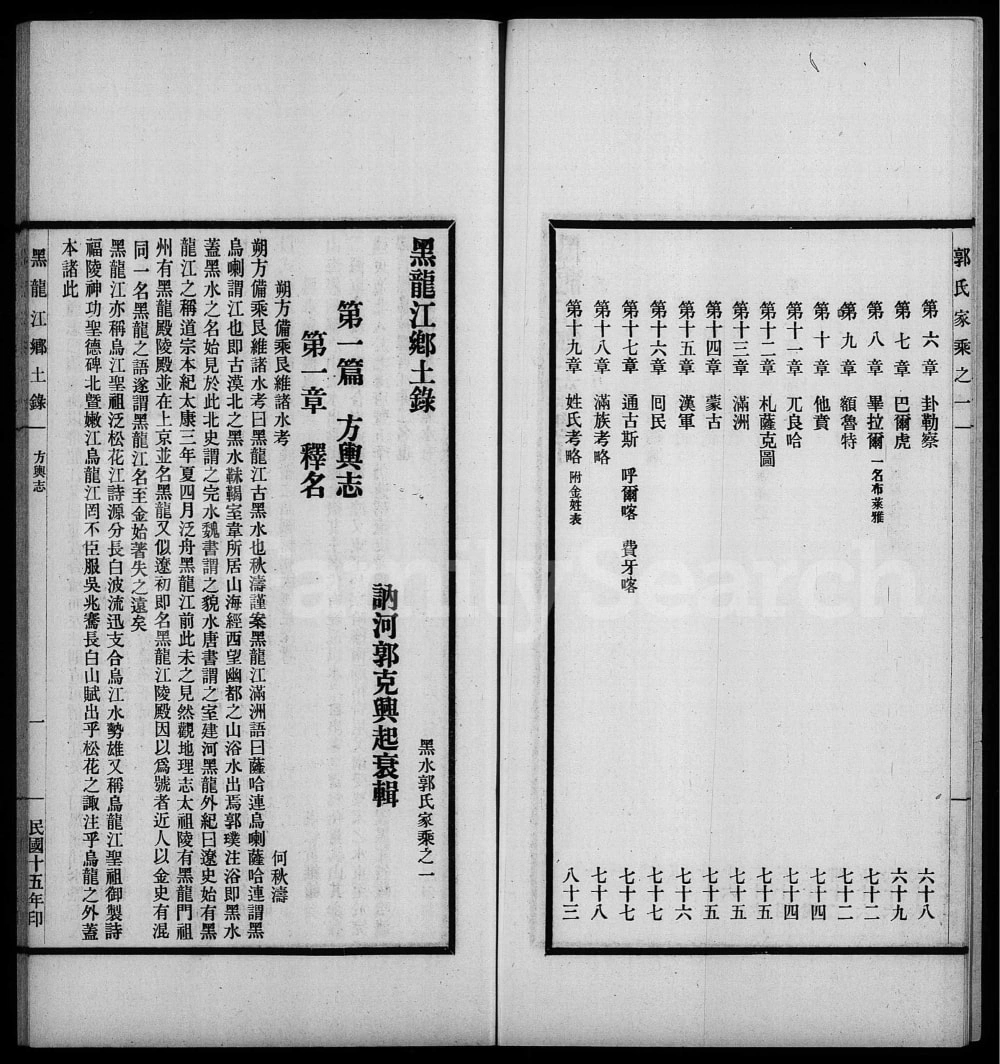 郭氏家乘之一
第六章 卦勒察 六十八
第七章 巴爾虎 六十九
第八章 畢拉爾 一名布萊雅 七十二
第九章 額魯特 七十二
第十章 他賁 七十四
第十一章 兀良哈 七十四
第十二章 札薩克圖 七十五
第十三章 滿洲 七十五
第十四章 蒙古 七十五
第十五章 漢軍 七十六
第十六章 囘民 七十七
第十七章 通古斯 呼爾喀 費牙喀 七十七
第十八章 滿族考略 七十八
第十九章 姓氏考略 附金姓表 八十三
黑龍江鄉土錄 黑水郭氏家乘之一
訥河郭克興起衰輯
第一篇 方輿志
第一章 釋名
朔方備乘艮維諸水考 何秋濤
朔方備乘艮維諸水考曰黑龍江古黑水也秋濤謹案黑龍江滿洲語曰薩哈連烏喇薩哈連謂黑
烏喇謂江也即古漠北之黑水靺鞨室韋所居山海經西望幽都之山浴水出焉郭璞注浴即黑水
蓋黑水之名始見於此北史謂之完水魏書謂之貌水唐書謂之室建河黑龍外紀曰遼史始有黑
龍江之稱道宗本紀太康三年夏四月泛舟黑龍江前此未之見然觀地理志太祖陵有黑龍門祖
州有黑龍殿陵殿並在上京並名黑龍又似遼初即名黑龍江陵殿因以爲號者近人以金史有混
同一名黑龍之語遂謂黑龍江名至金始著失之遠矣
黑龍江亦稱烏江聖祖泛松花江詩源分長白波流迅支合烏江水勢雄又稱烏龍江聖祖御製詩
福陵神功聖德碑北暨嫩江烏龍江罔不臣服吳兆騫長白山賦出乎松花之諏注乎烏龍之外蓋
本諸此
黑龍江鄉土錄 方輿志 一 民國十五年印
FamilySearch